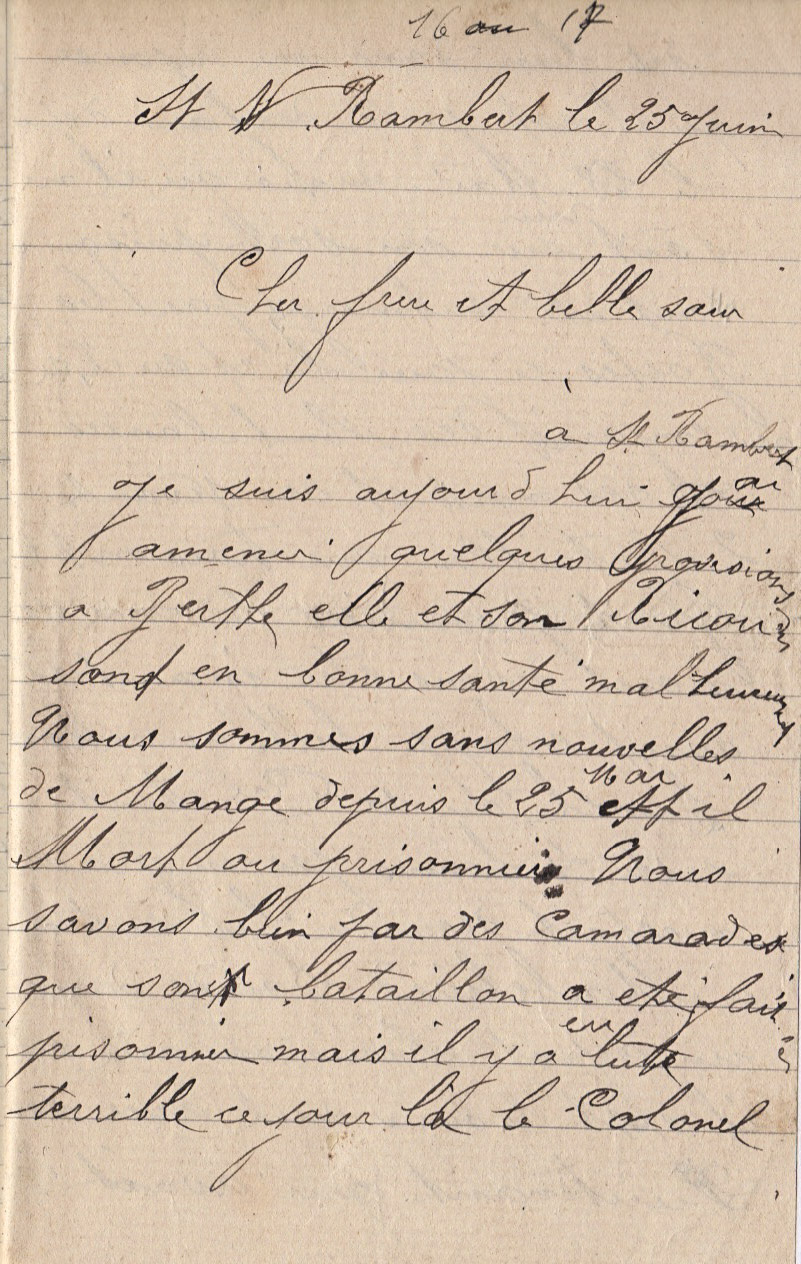 16 ou 17
St Rambert le 25 Juin
Cher frere et belle sœur
à St Rambert
Je suis aujourd hui j'ai
amener quelques provisions
a Berthe elle et son
sont en bonne santé malheureusement
Nous sommes sans nouvelles
de Mange depuis le 25 Mar est il
Mort ou prisonnier Nous
savons bien par des Camarades
que son bataillon a eté fait
prisonnier mais il y a eu lute
terrible ce jour là le Colonel